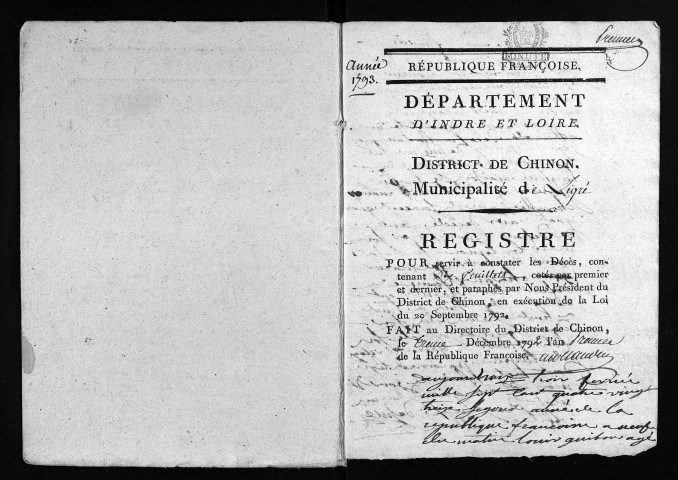 premier
année
1793.
MINUTE
RÉPUBLIQUE FRANÇOISE,
DÉPARTEMENT
D'INDRE ET LOIRE,
DISTRICT DE CHINON.
Municipalité de Ligré
REGISTRE
POUR servir à constater les Décès, con-
tenant feuillets, cotés par premier
et dernier, et paraphés par Nous Président du
District de Chinon, en exécution de la Loi
du 20 Septembre 1792.
FAIT au Directoire du District de Chinon,
le Décembre 1792 l'an premier
de la République Françoise.
aujourdhuis trois
mille sept cent quatre vingt
treize segond année de la
republique francoise a neuf
du matin louis agé